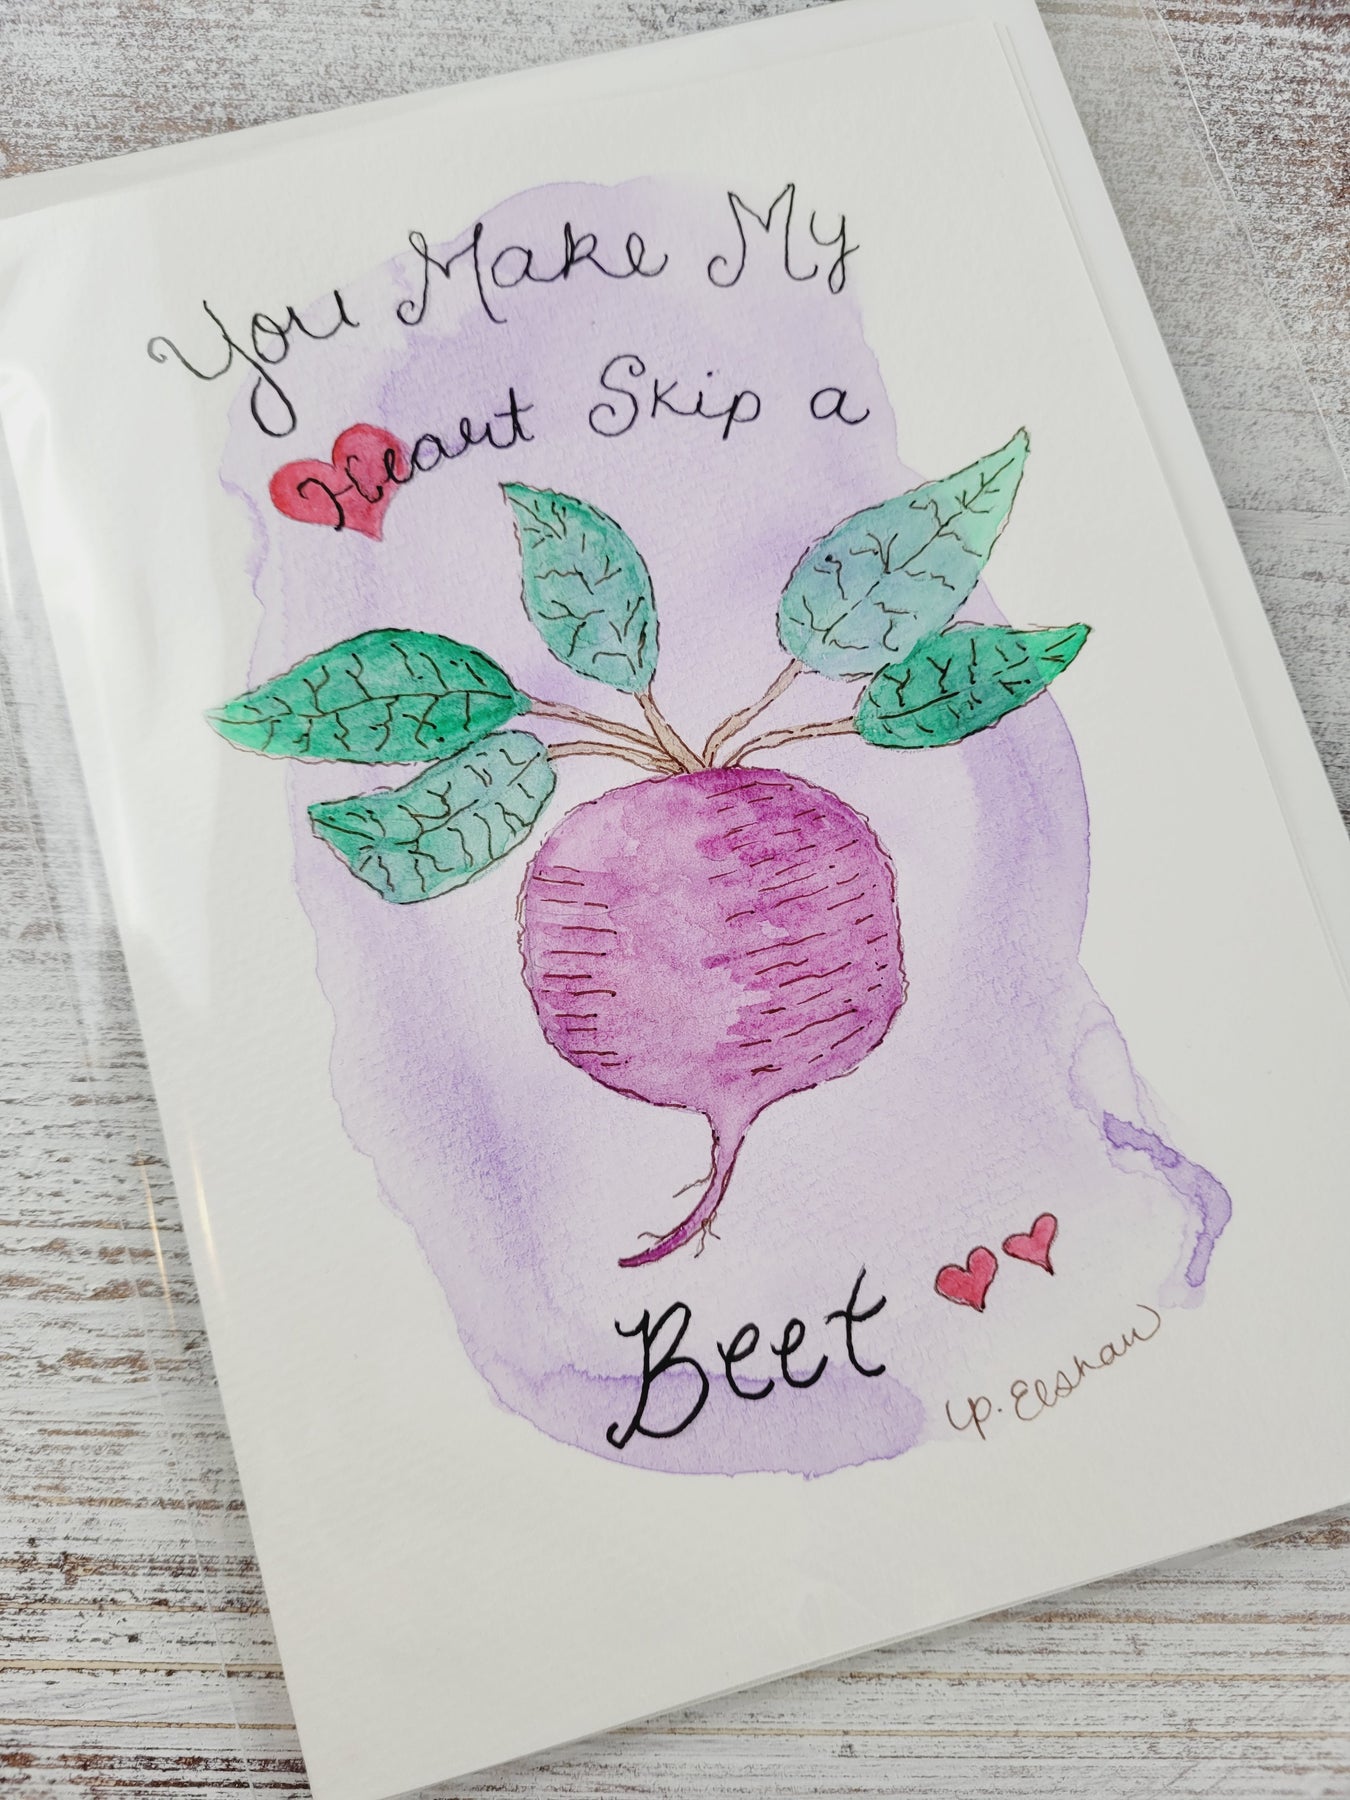 You Make My
Heart Skip a
Beet
P. Elshaw